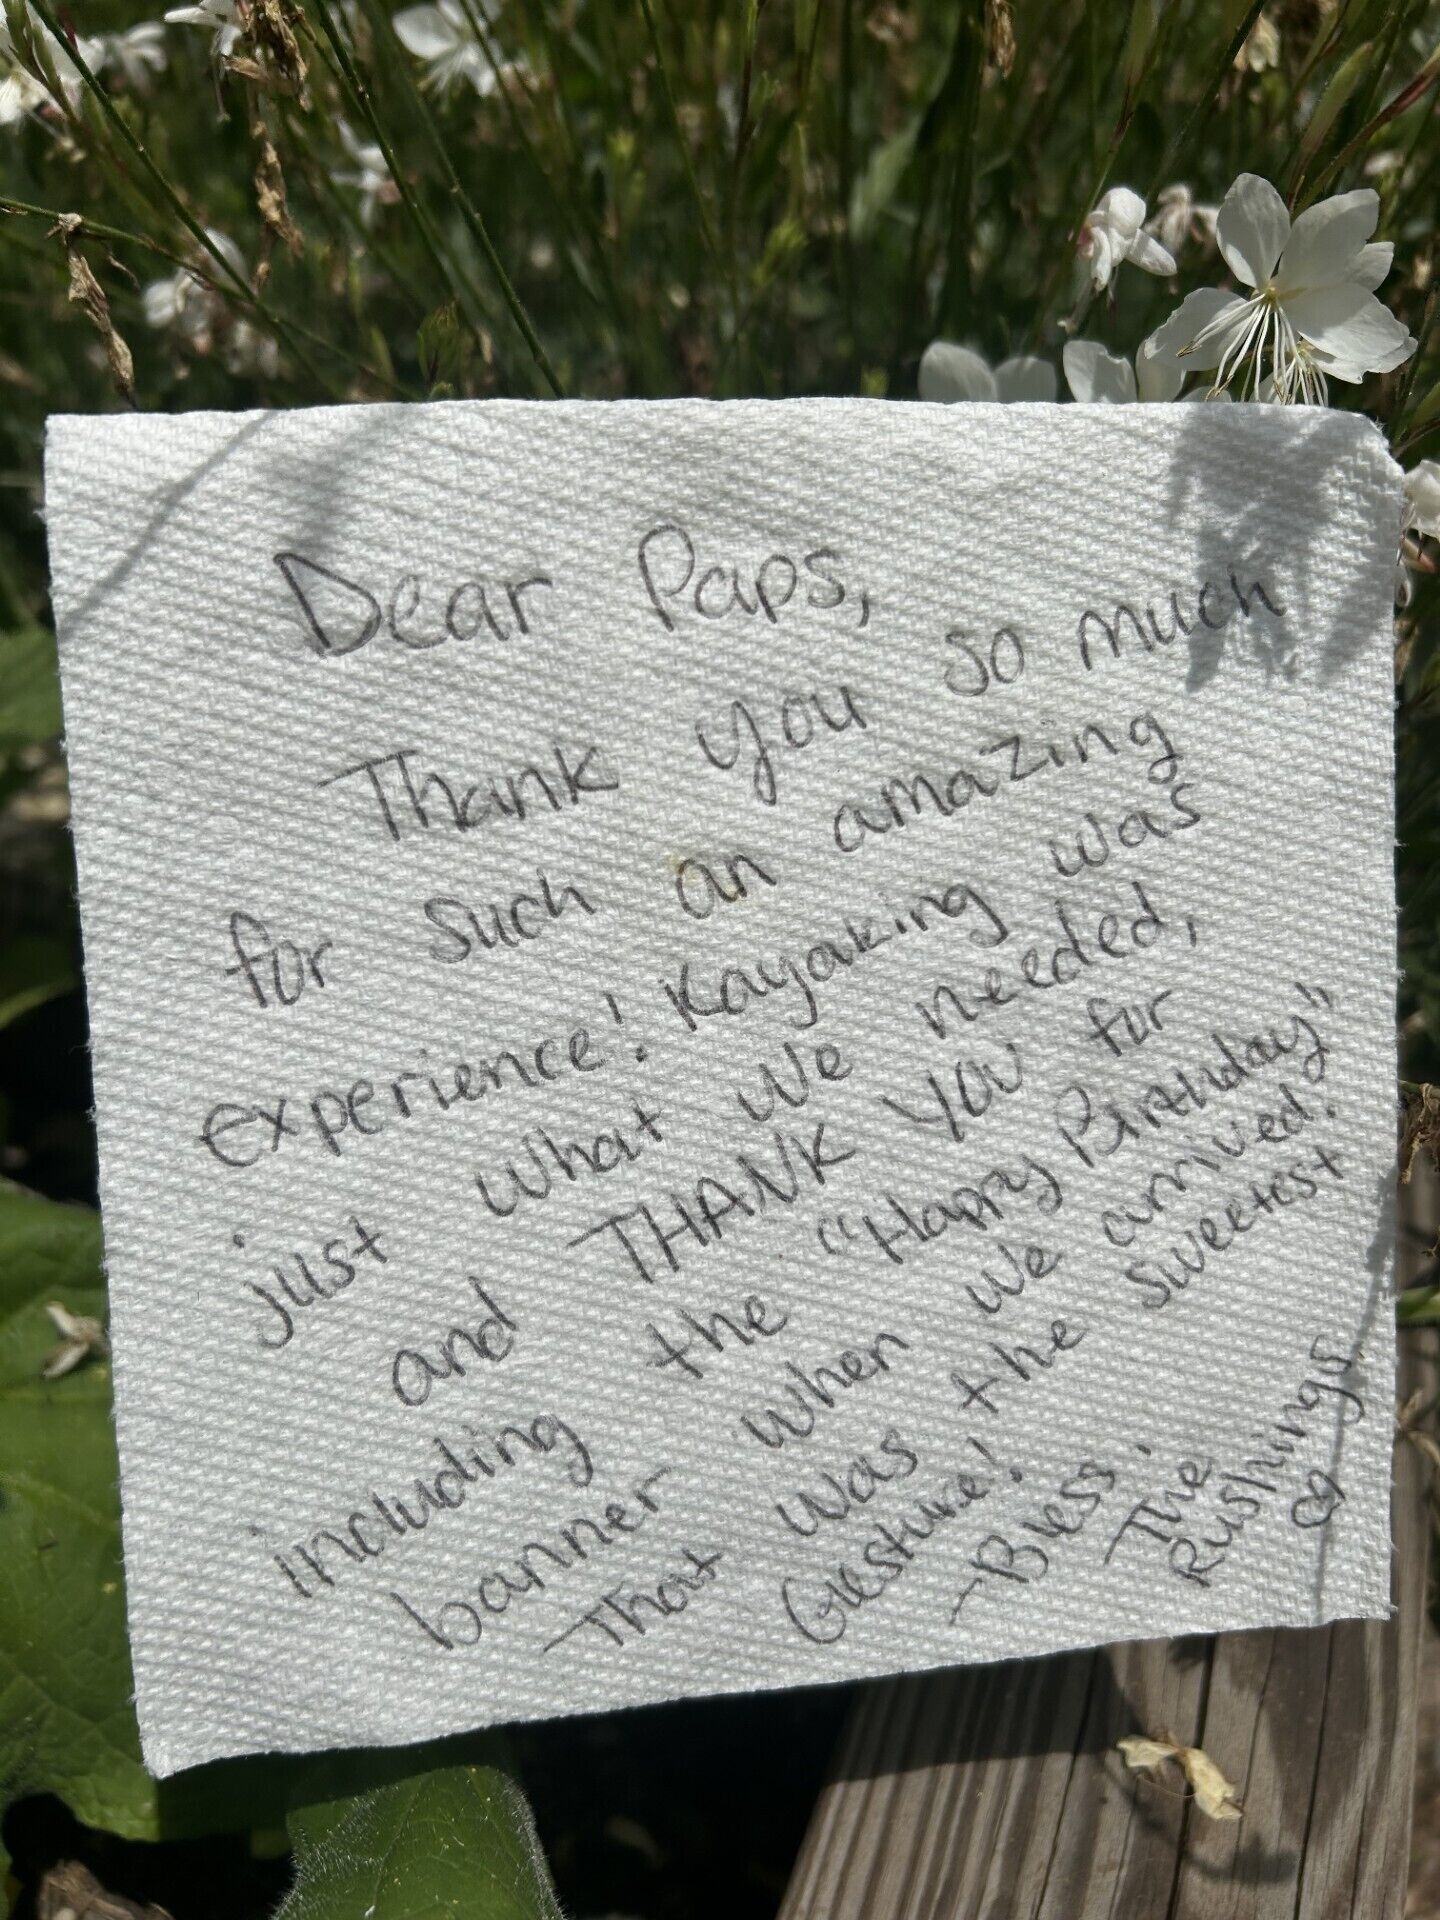 Dear Paps,
Thank you so much
for such an amazing
experience! Kayaking was
just what we needed,
and THANK YOU for
including the "Happy Birthday"
banner when we arrived.
That was the sweetest
Gesture!
-Bless.
The
Rushings